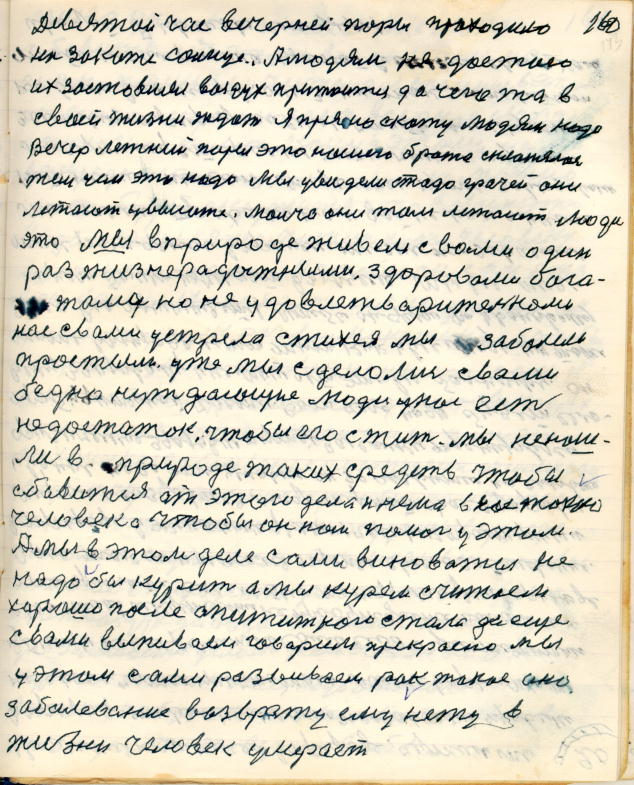 Девятой час вечерней поры проходило 160
на закате сонце. А людям не достого
их заставили воздух притаится да чего та в
своей жизни ждат Я прямо скажу людям надо
Вечер летний пары это нашего брата склонялое
тем чем это надо мы увидели стадо грачей они
летают у высоте. молча они там летают Люди
это мы в природе живем с вами один
раз жизнерадыстными. здоровами бога-
тами но не удовлетварителноми
нас с вами устрела стихея мы заболели
простыли. уже мы сделолис с вами
бедно нуждающие люди у нас ест
недостаток. чтобы его с тит. мы ненаш-
ли в природе таких средств чтобы
сбавится ат этого дела и нема в нас такого
человека чтобы он нам помог у этом.
А мы в этом деле сами виноваты не
надо бы курит а мы курем считаем
харашо после спититного стала да еще
с вами выпиваем говорим прекрасно мы
у этом сами развиваем рак такое оно
забалевание возврату ему нету в
жизни человек умерает